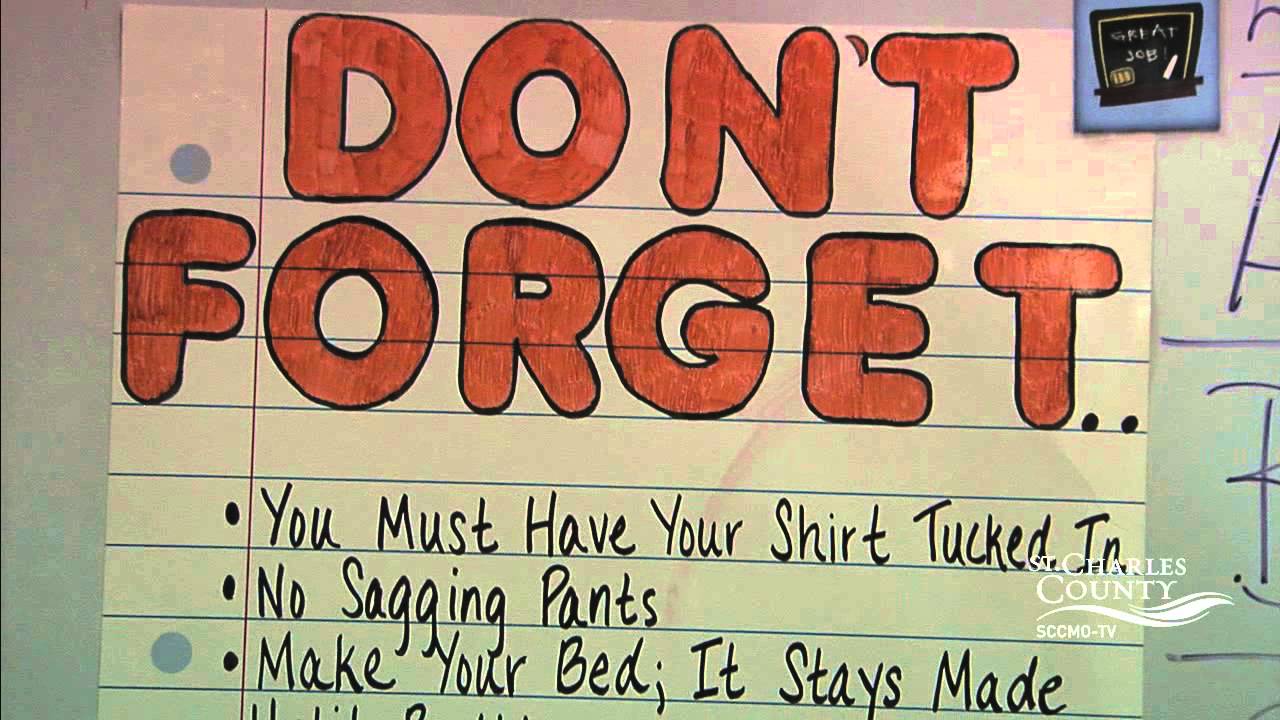 DON'T
FORGET..
• You Must Have Your Shirt Tucked In
• No Sagging Pants
• Make Your Bed; It Stays Made
GREAT
JOB!
ST. CHARLES
COUNTY
SCCMO-TV